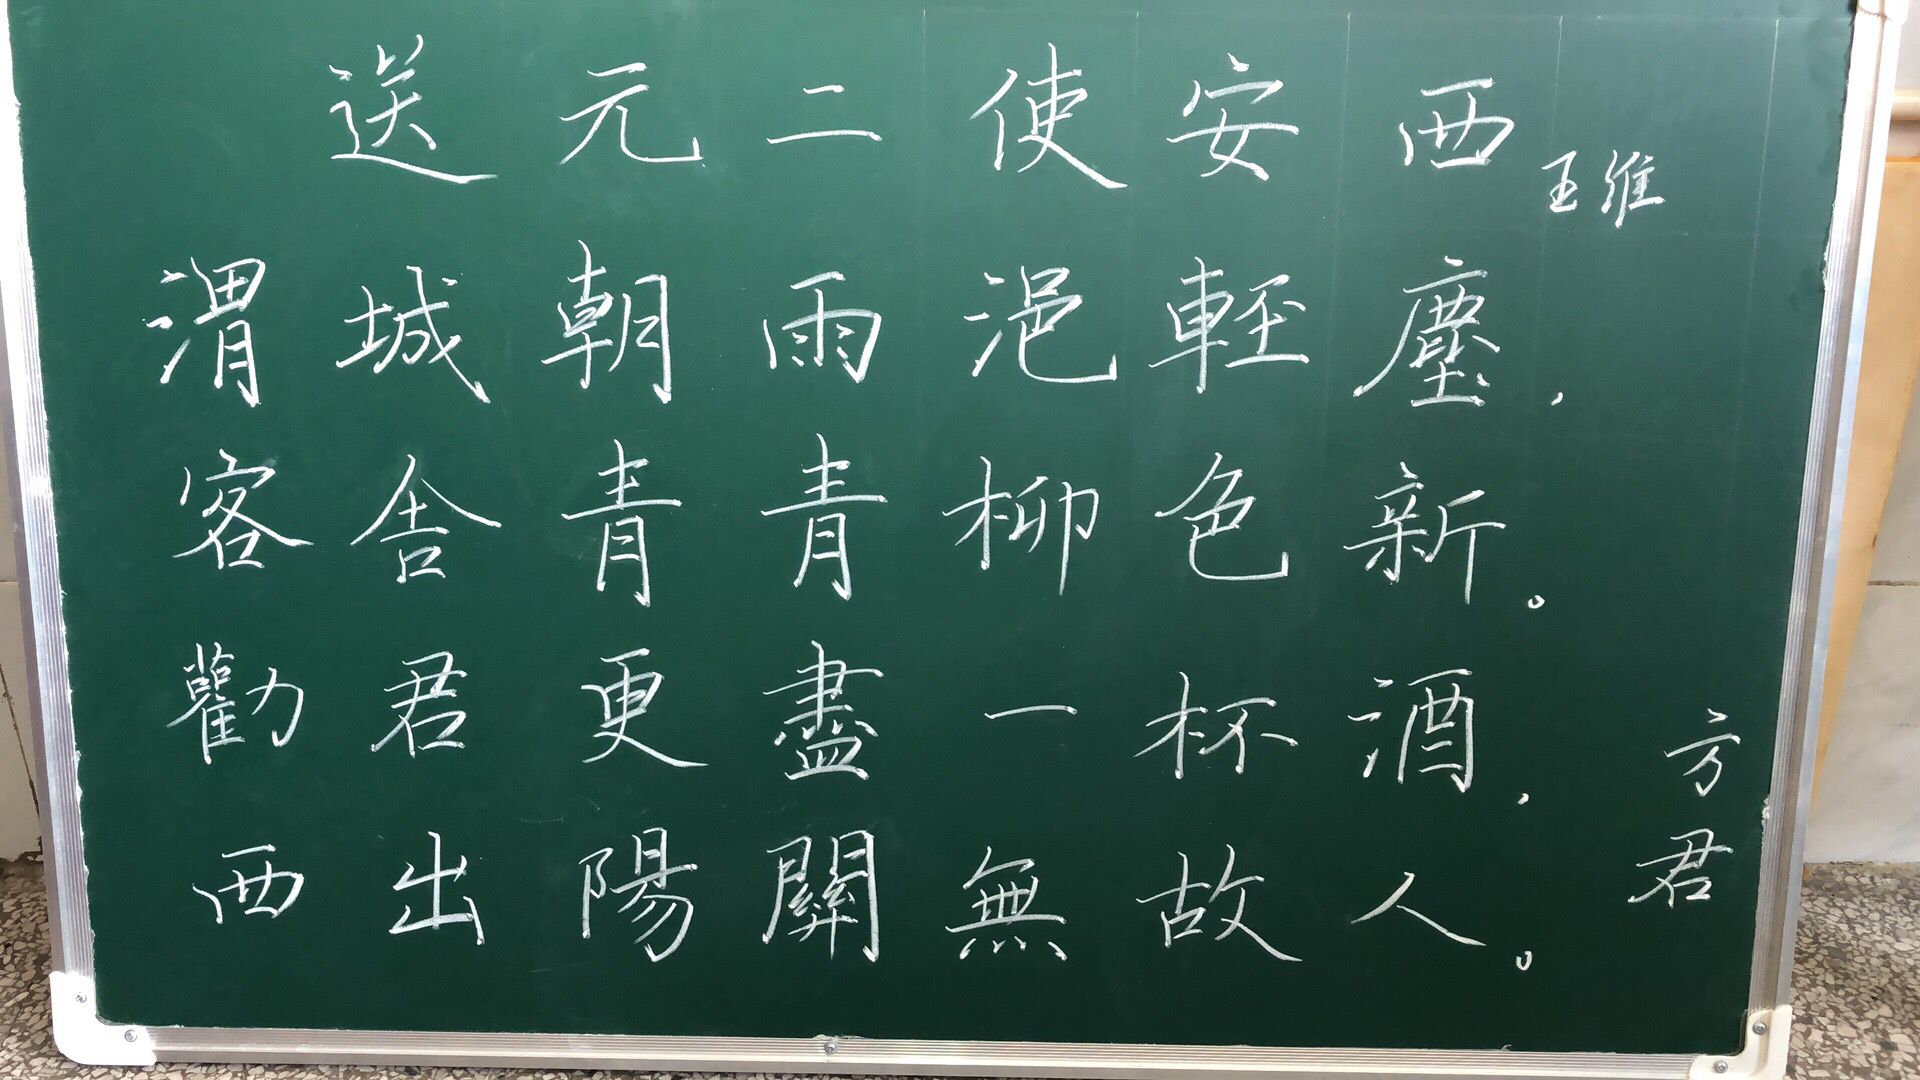 送元二使安西
王維
渭城朝雨浥輕塵，
客舍青青柳色新。
勸君更盡一杯酒，
西出陽關無故人。
方君